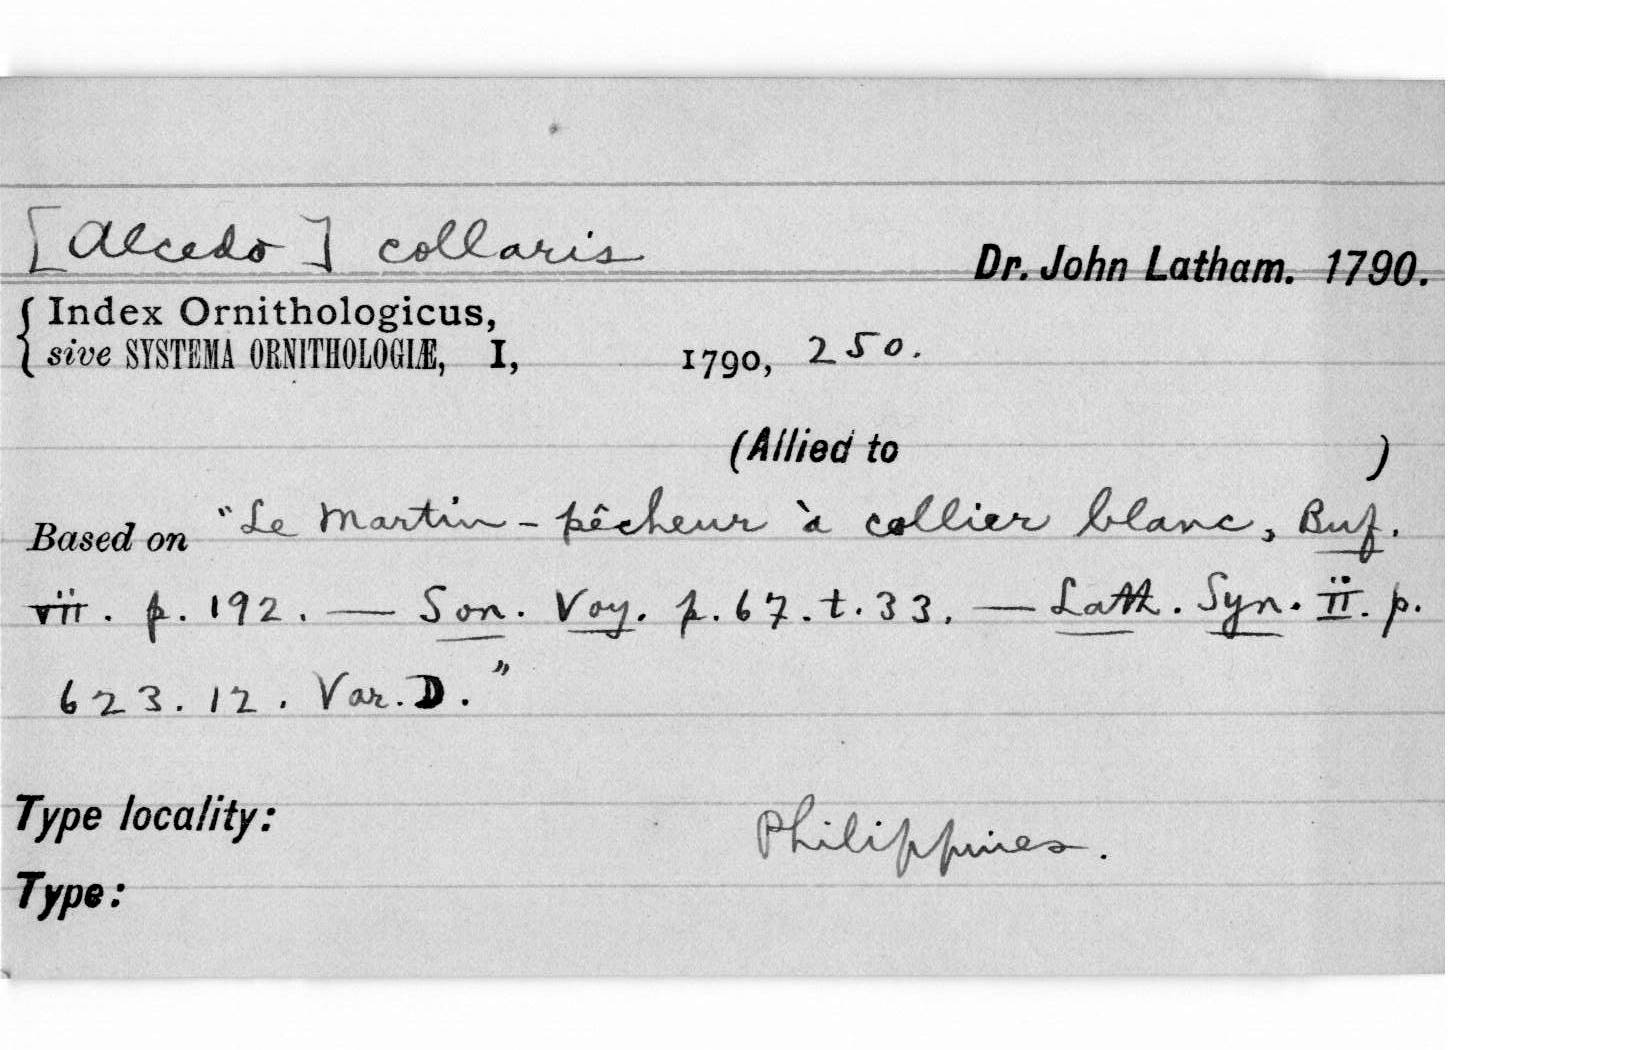 [Alcedo] collaris
Dr. John Latham. 1790.
{ Index Ornithologicus,
sive SYSTEMA ORNITHOLOGIÆ, I, 1790, 250.
(Allied to )
Based on "Le Martin-pêcheur à collier blanc, Buf.
vii. p. 192. — Son. Voy. p. 67. t. 33. — Lath. Syn. ii. p.
623. 12. Var. D."
Type locality: Philippines.
Type: